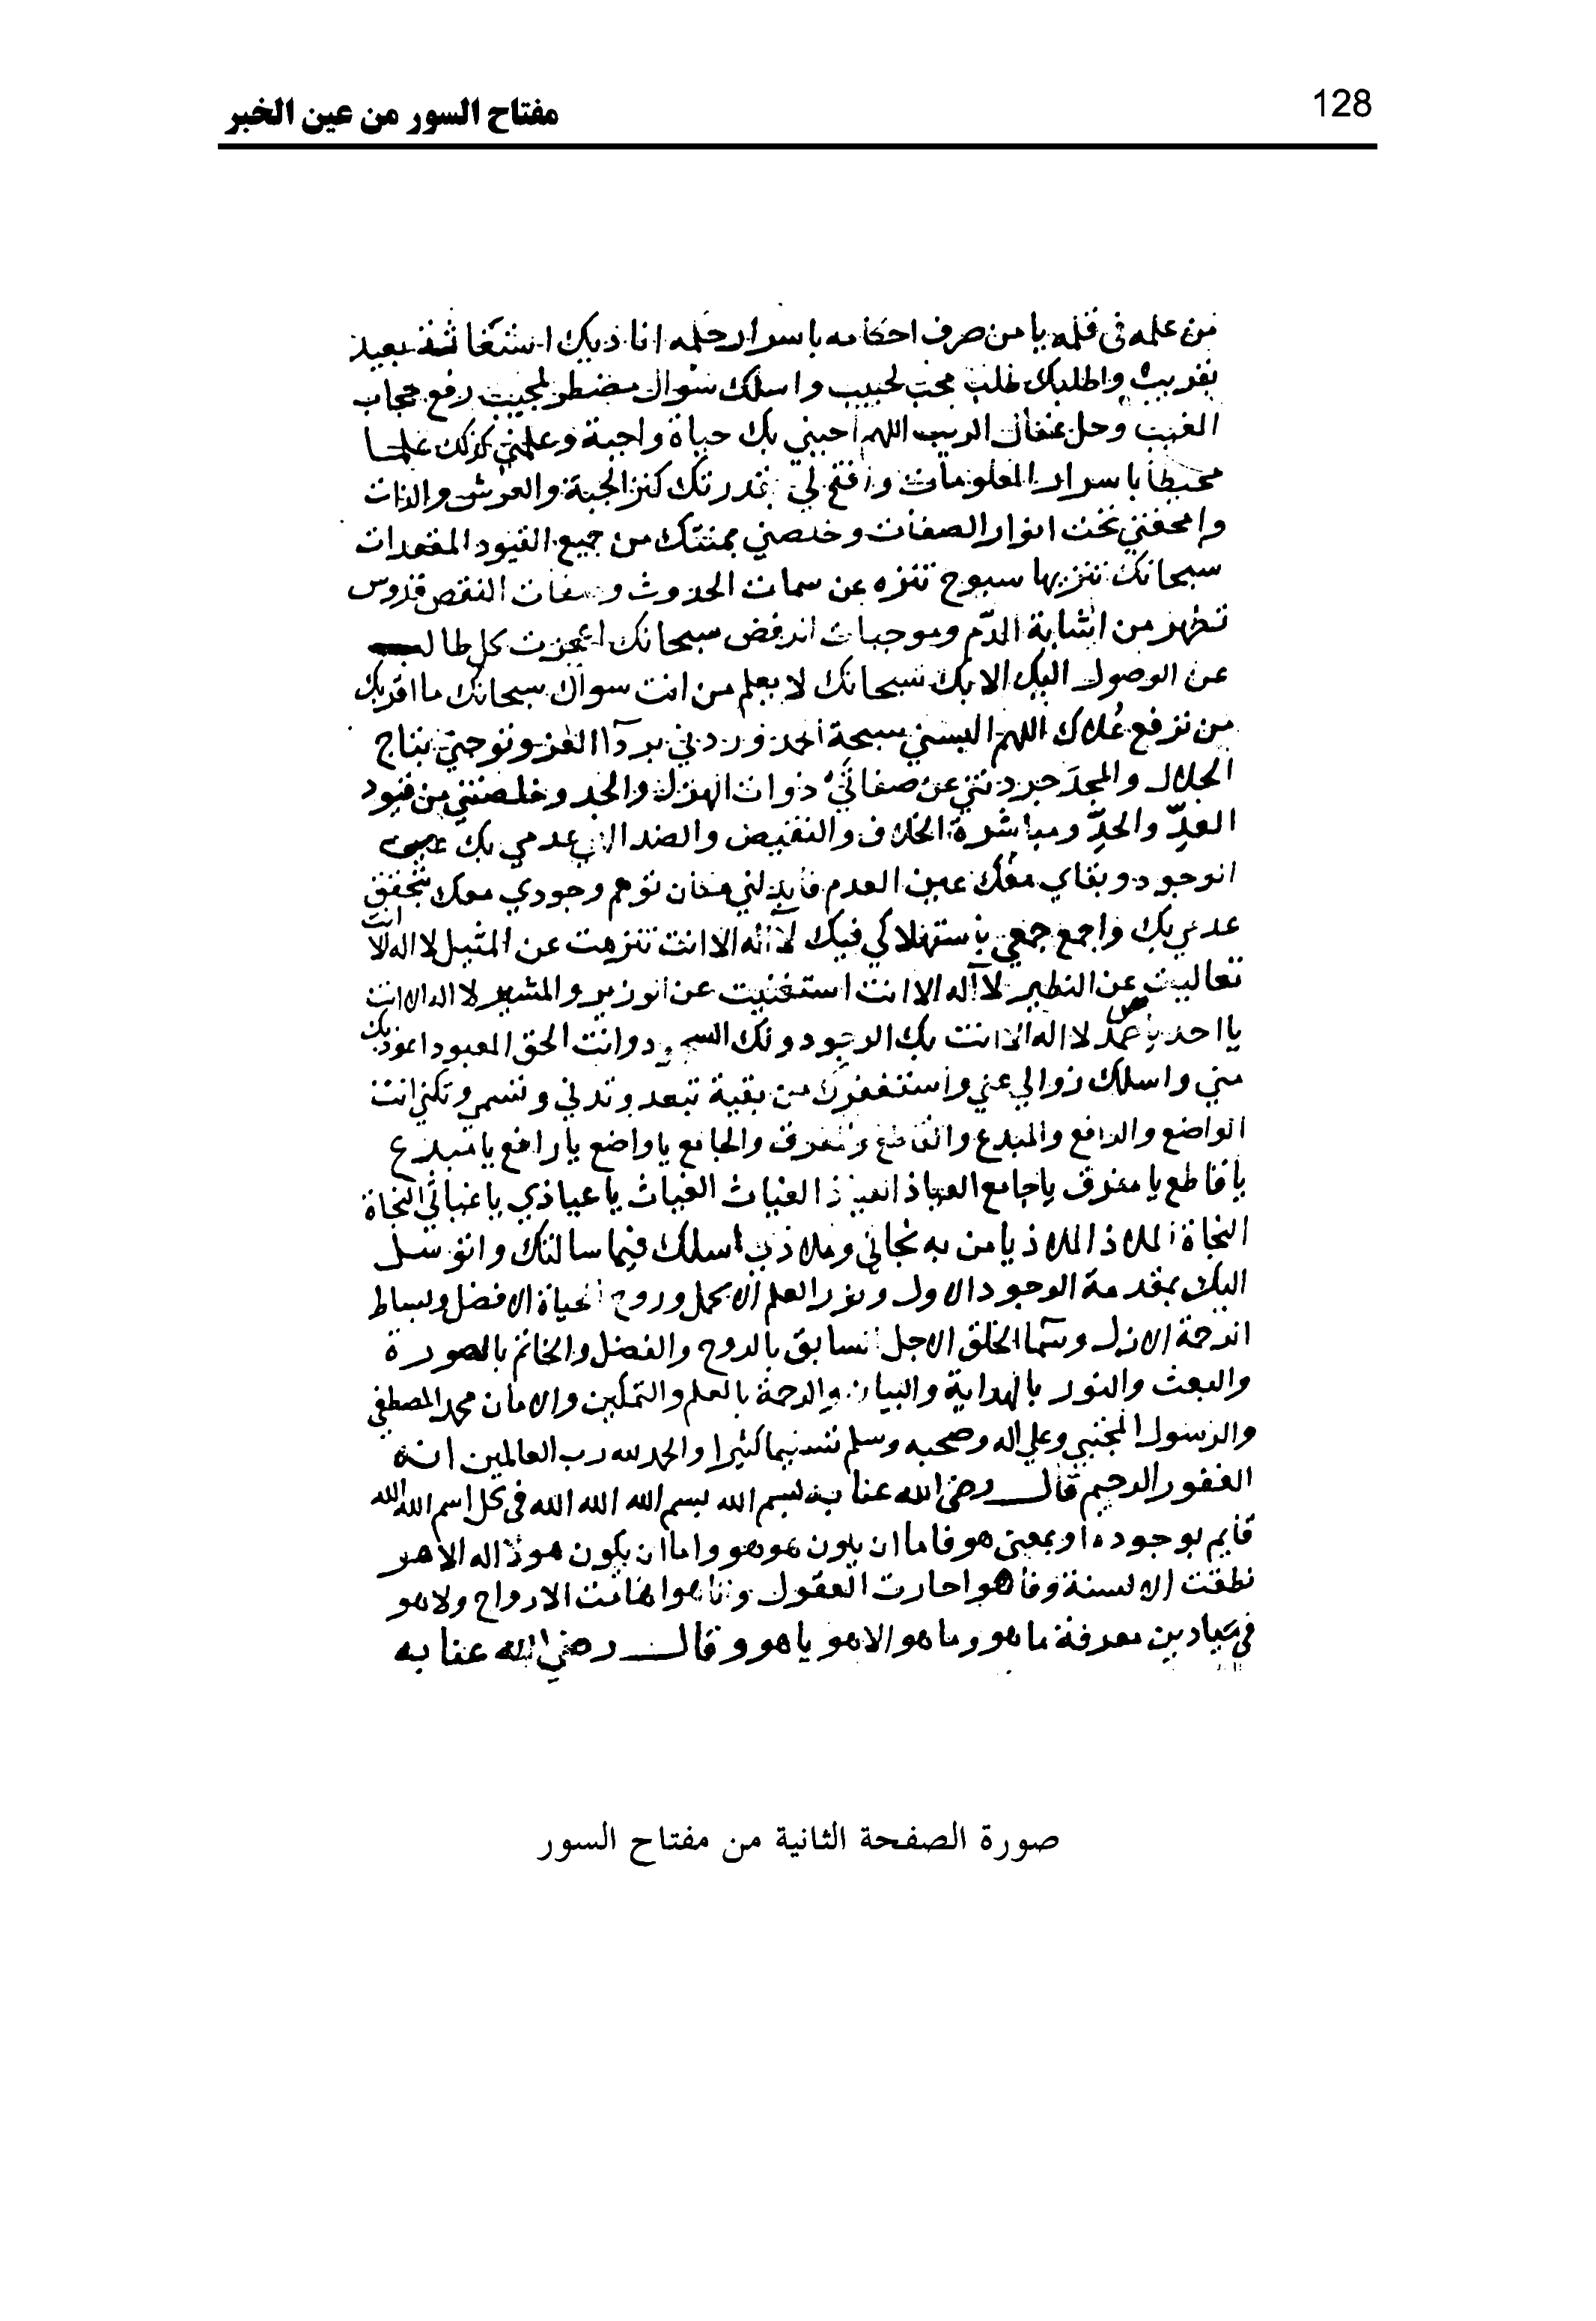 128
مفتاح السور من عين الخبر
من علمه في قلمه يا من صرف احكامه باسرار حلمه اناديك استغاثة بعيد
بقريب واطلبك طلب محب لحبيب واسلك سوال مضطر لمجيب رفع حجاب
الغيب وحل عقال الريب اللهم احيني بك حياة واجبة وعلمني كذلك علما
محيطا باسرار المعلومات وافتح لي بقدرتك كنز الجنة والعرش والذات
وامحقني تحت انوار الصفات وخلصني بمنتك من جميع القيود المقعدات
سبحانك تنزيها سبوح تنزه عن سمات الحدوث وصفات النقص قدوس
تطهر من الذم وموجبات الرفض سبحانك اعجزت كل طالب
عن الوصول اليك الا بك سبحانك لا يعلم من انت سواك سبحانك ما اقربك
من ترفع علاك اللهم البسني سبحة الحمد وردني بردآ العز وتوجني بتاج
الجلال والمجد جردني عن صفات ذوات الهزل والجد وخلصني من قيود
العدّ والحدّ ومباشرة الخلاف والنقيض والضد الاهي عدمي بك عين
الوجود وبقاي معك عين العدم فابدلني مكان توهم وجودي معك بتحقق
عدمي بك واجمع جمعي باستهلاكي فيك لا اله الا انت تنزهت عن المثيل لا اله الا انت
تعاليت عن النظير لا آله الا انت استغنيت عن الوزير والمشير لا اله الا انت
يا احد يا صمد لا اله الا انت بك الوجود ولك السجود وانت الحق المعبود اعوذ بك
مني واسلك زوالي عني واستغفرك من بقية تبعد وتدني وتسمي وتكني انت
الواضع والرافع والمبدع والقاطع والمفرق والجامع يا واضع يا رافع يا مبدع
يا قاطع يا مفرق يا جامع العياذ العياذ الغياث الغياث يا عياذي يا غياثي النجاة
النجاة الملاذ الملاذ يا من به نجاتي وملاذي اسلك فيما سالتك واتوسل
اليك بمقدمة الوجود الاول ونور العلم الاكمل وروح الحياة الافضل وبساط
الرحمة الازل وسما الخلق الاجل السابق بالروح والفضل والخاتم بالصورة
والبعث والنور بالهداية والبيان والرحمة بالعلم والتمكين والامان محمد المصطفي
والرسول المجتبي وعلي اله وصحبه وسلم تسليما كثيرا والحمد لله رب العالمين انه
الغفور الرحيم قال رضي الله عنا به بسم الله بسم الله الله الله في كل اسم الله الله
قايم بوجوده او بمعني هو فاما ان يكون هو هو واما ان يكون هو ذا اله الا هو
نطقت الالسنة وفاهوا حارت العقول وتاهوا هامت الارواح ولا هو
في ميادين معرفة ما هو وما هو الا هو يا هو وقال رضي الله عنا به
صورة الصفحة الثانية من مفتاح السور